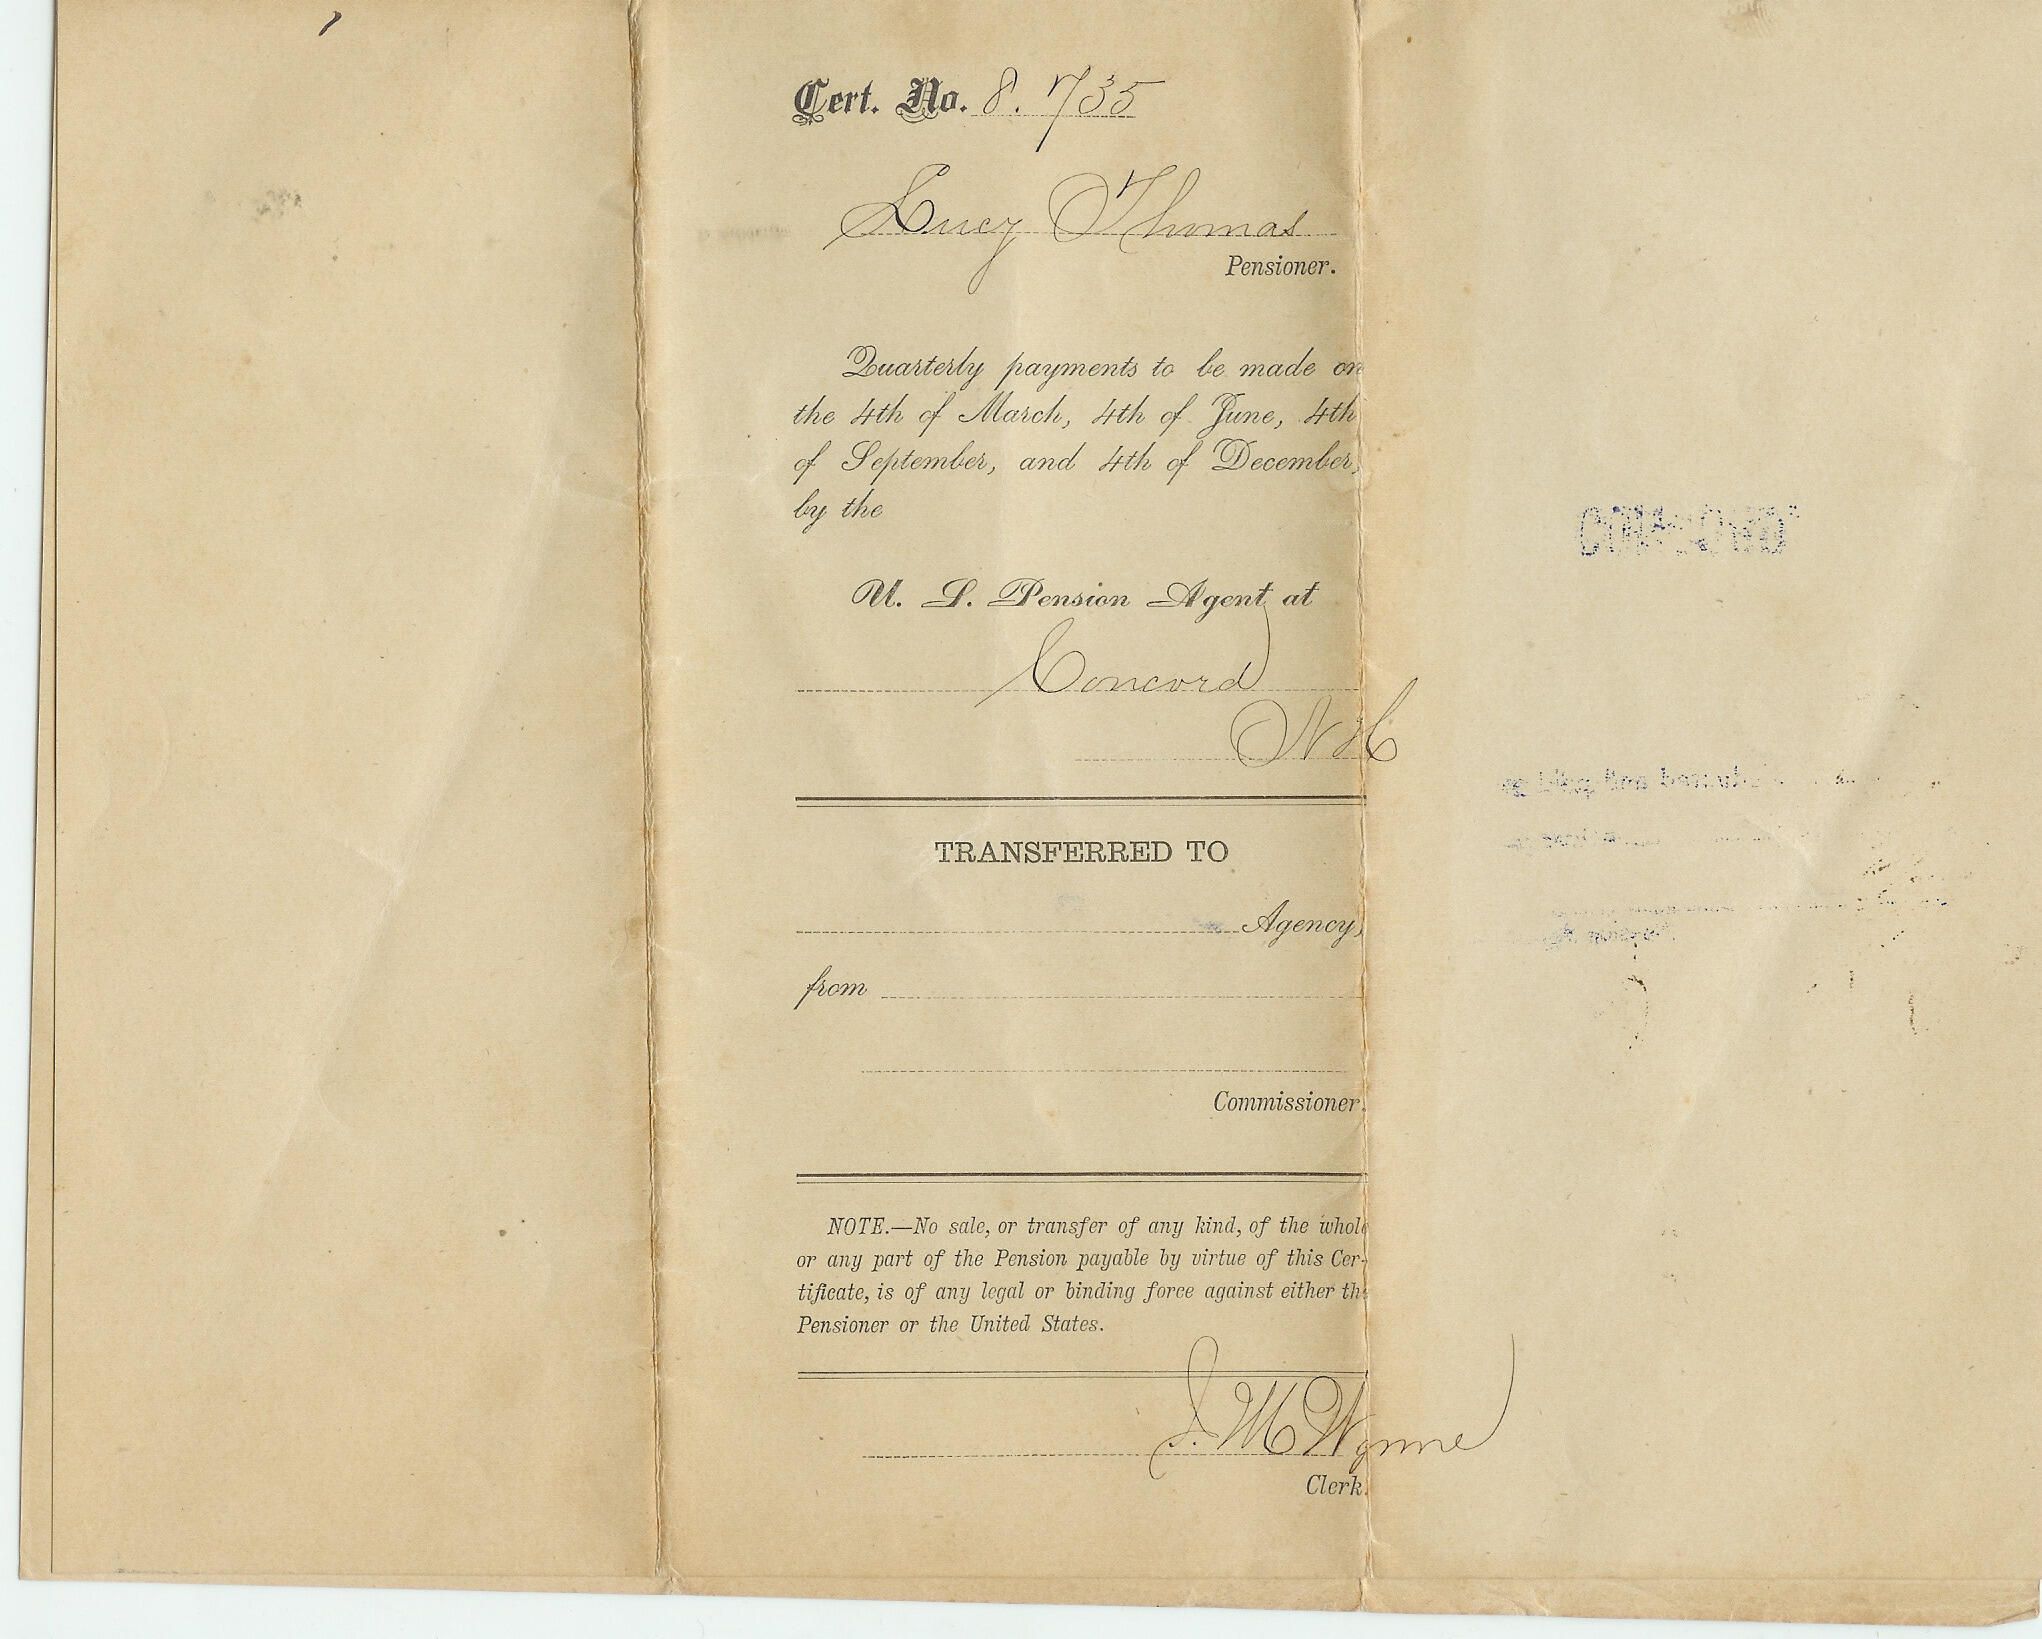 Cert. No. 8.735
Lucy Thomas
Pensioner.
Quarterly payments to be made on
the 4th of March, 4th of June, 4th
of September, and 4th of December,
by the
U. S. Pension Agent at
Concord
NH
TRANSFERRED TO
Agency,
from
Commissioner.
NOTE.—No sale, or transfer of any kind, of the whole
or any part of the Pension payable by virtue of this Cer-
tificate, is of any legal or binding force against either the
Pensioner or the United States.
J. M Wynne
Clerk.